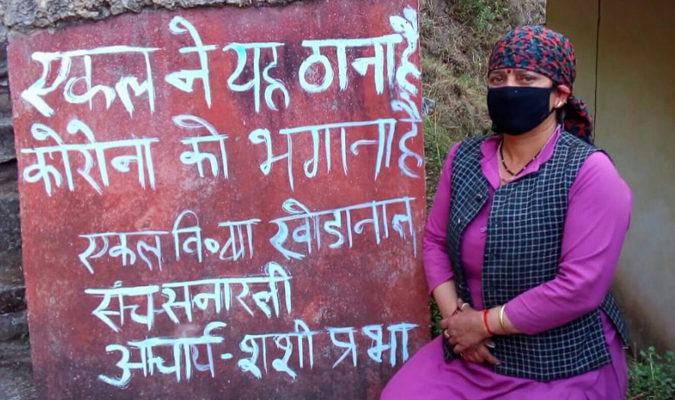 एकल ने यह ठाना है
कोरोना को भगाना है
एकल वि॰ग्रा खोडानाल
संच-सनारली
आचार्य-शशी प्रभा